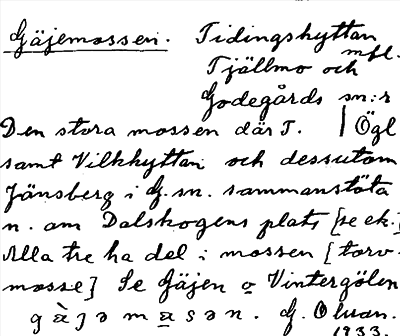 Gäjemossen. Tidingshyttan
mfl.
Tjällmo och
Godegårds sn:r
Den stora mossen där T. | Ögl
samt Vilkhyttan och dessutom
Jänsberg i G. sn. sammanstöta
n. om Dalskogens plats [se ek.]
Alla tre ha del i mossen [torv-
mosse] Se Gäjen o Vintergölen
G. Oluan.
1933.